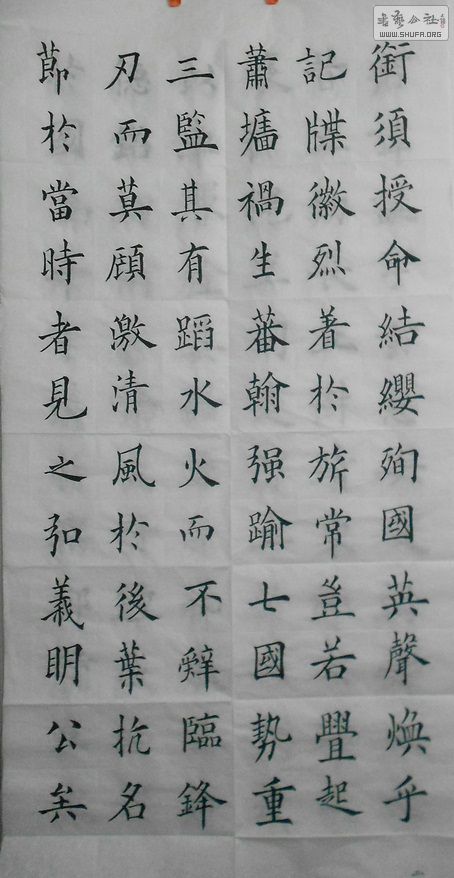 書藝公社
WWW.SHUFA.ORG
銜須授命結纓殉國英聲煥乎
記牒徽烈著於旂常豈若舋起
蕭墻禍生蕃翰强踰七國勢重
三監其有蹈水火而不辤臨鋒
刃而莫顧激清風於後葉抗名
節於當時者見之弘義明公矣